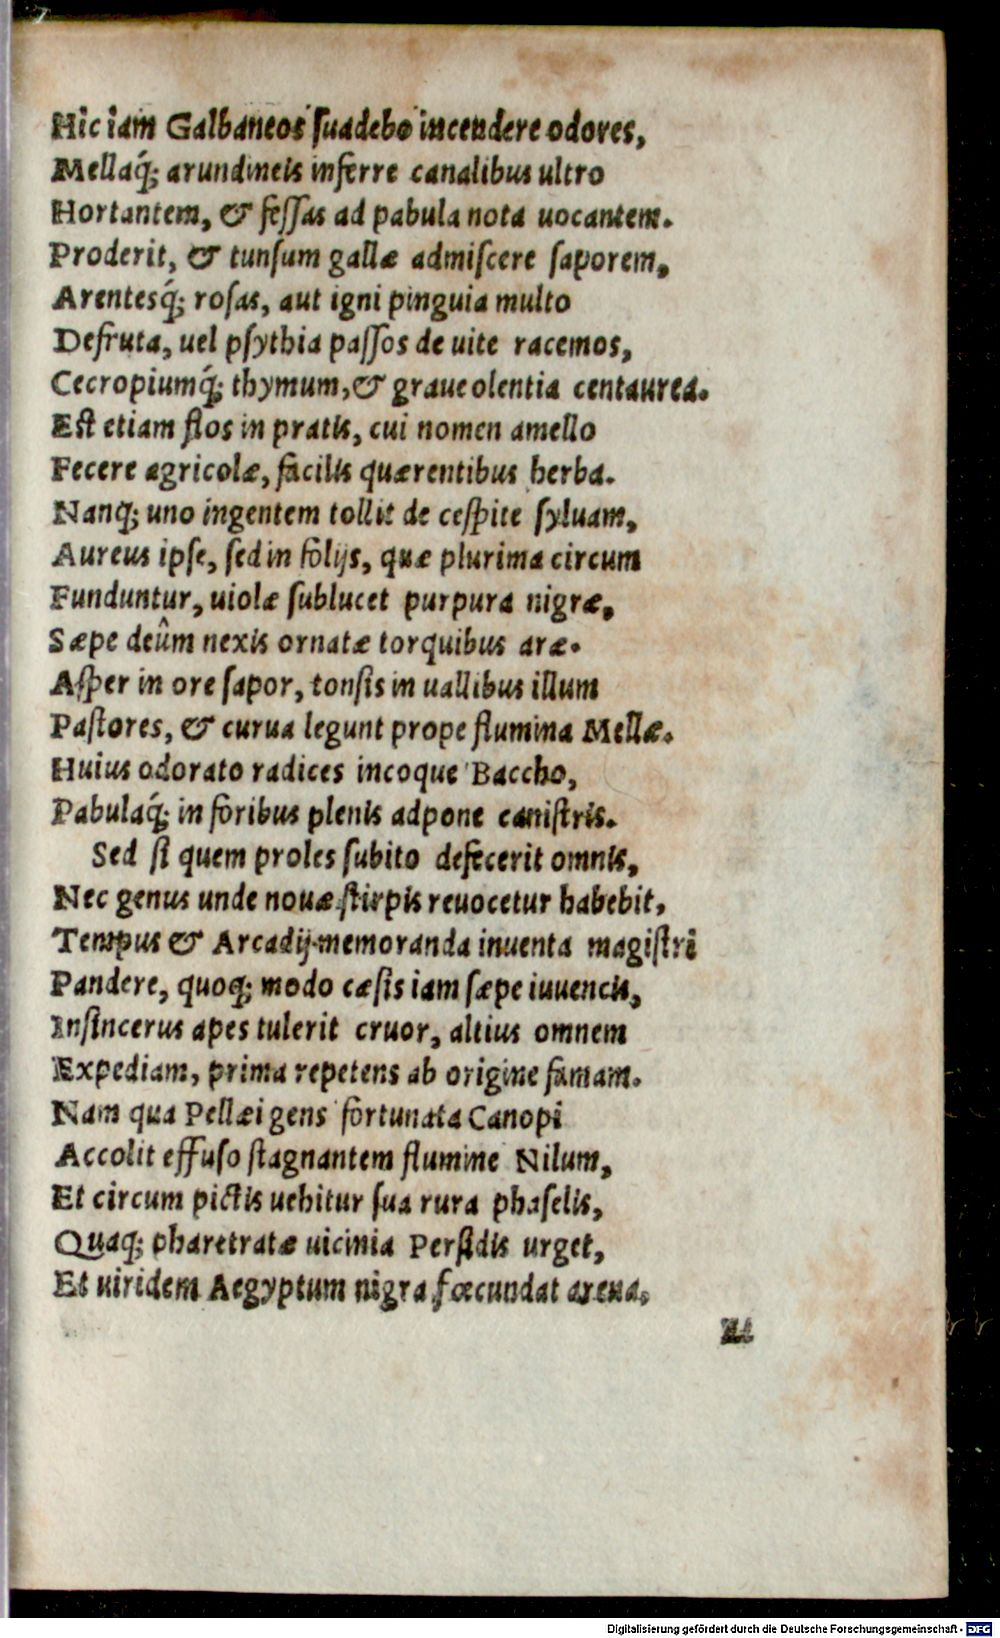 Hic iam Galbaneos suadebo incendere odores,
Mellaq́; arundineis inferre canalibus ultro
Hortantem, & fessas ad pabula nota uocantem.
Proderit, & tunsum gallæ admiscere saporem,
Arentesq́; rosas, aut igni pinguia multo
Defruta, uel psythia passos de uite racemos,
Cecropiumq́; thymum, & graue olentia centaurea.
Est etiam flos in pratis, cui nomen amello
Fecere agricolæ, facilis quærentibus herba.
Nanq; uno ingentem tollit de cespite syluam,
Aureus ipse, sed in folijs, quæ plurima circum
Funduntur, uiolæ sublucet purpura nigræ,
Sæpe deûm nexis ornatæ torquibus aræ.
Asper in ore sapor, tonsis in uallibus illum
Pastores, & curua legunt prope flumina Mellæ.
Huius odorato radices incoque Baccho,
Pabulaq́; in foribus plenis adpone canistris.
Sed si quem proles subito defecerit omnis,
Nec genus unde nouæ stirpis reuocetur habebit,
Tempus & Arcadij memoranda inuenta magistri
Pandere, quoq; modo cæsis iam sæpe iuuencis,
Insincerus apes tulerit cruor, altius omnem
Expediam, prima repetens ab origine famam.
Nam qua Pellæi gens fortunata Canopi
Accolit effuso stagnantem flumine Nilum,
Et circum pictis uehitur sua rura phaselis,
Quaq; pharetratæ uicinia Persidis urget,
Et uiridem Aegyptum nigra fœcundat arena,
Digitalisierung gefördert durch die Deutsche Forschungsgemeinschaft - DFG